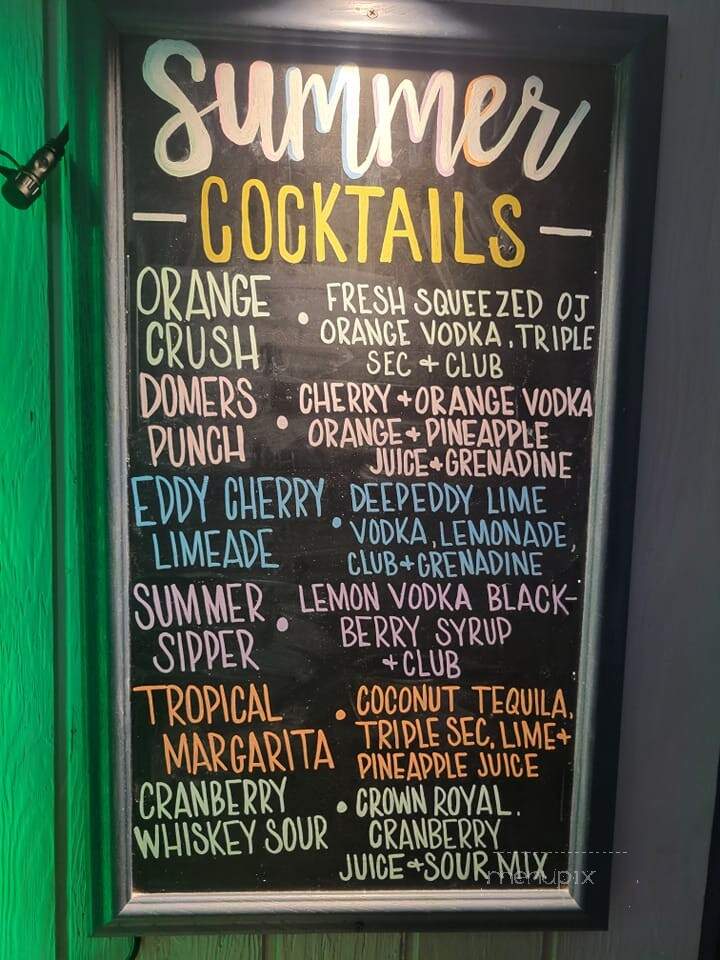 Summer
COCKTAILS
ORANGE CRUSH • FRESH SQUEEZED OJ
ORANGE VODKA, TRIPLE
SEC + CLUB
DOMERS PUNCH • CHERRY + ORANGE VODKA
ORANGE + PINEAPPLE
JUICE + GRENADINE
EDDY CHERRY LIMEADE • DEEPEDDY LIME
VODKA, LEMONADE,
CLUB + GRENADINE
SUMMER SIPPER • LEMON VODKA BLACK-
BERRY SYRUP
+ CLUB
TROPICAL MARGARITA • COCONUT TEQUILA,
TRIPLE SEC, LIME +
PINEAPPLE JUICE
CRANBERRY WHISKEY SOUR • CROWN ROYAL,
CRANBERRY
JUICE + SOUR MIX
menupix